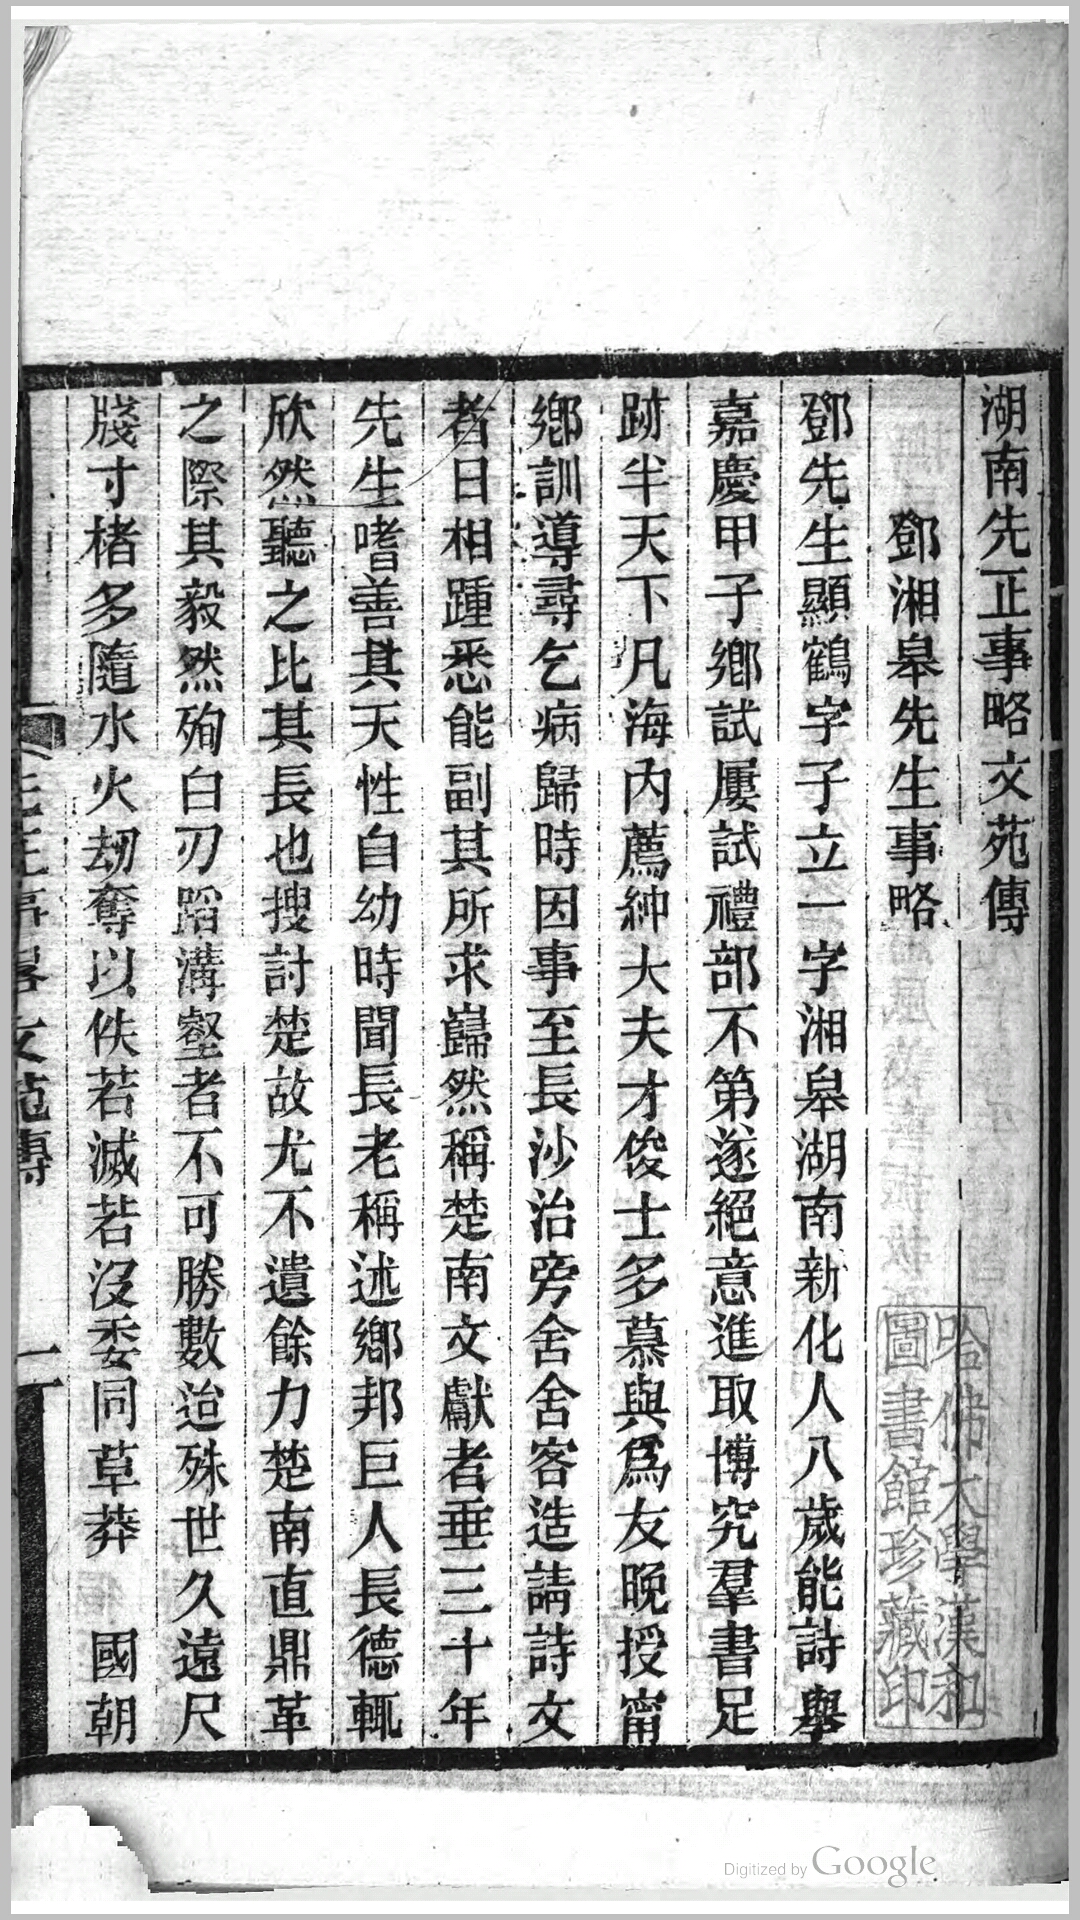 湖南先正事略文苑傳
鄧湘皋先生事略
鄧先生顯鶴字子立一字湘皋湖南新化人八歲能詩舉
嘉慶甲子鄉試屢試禮部不第遂絕意進取博究羣書足
跡半天下凡海內薦紳大夫才俊士多慕與爲友晚授甯
鄉訓導尋乞病歸時因事至長沙治旁舍舍客造請詩文
者日相踵悉能副其所求巋然稱楚南文獻者垂三十年
先生嗜善其天性自幼時聞長老稱述鄉邦巨人長德輒
欣然聽之比其長也搜討楚故尤不遺餘力楚南直鼎革
之際其毅然殉白刃蹈溝壑者不可勝數迨殊世久遠尺
牋寸楮多隨水火劫奪以佚若滅若沒委同草莽 國朝
文苑傳
一
哈佛大學漢和
圖書館珍藏印
Digitized by Google